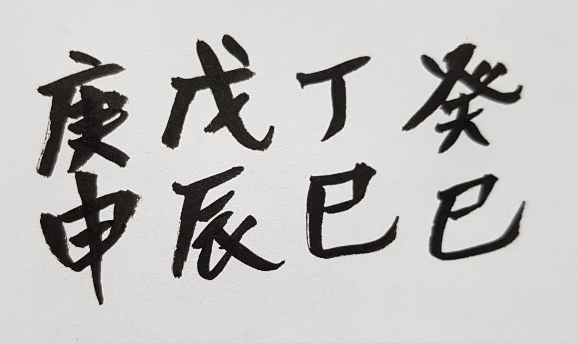 癸巳
丁巳
戊辰
庚申